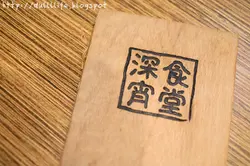 http://dullllife.blogspot
深宵
食堂